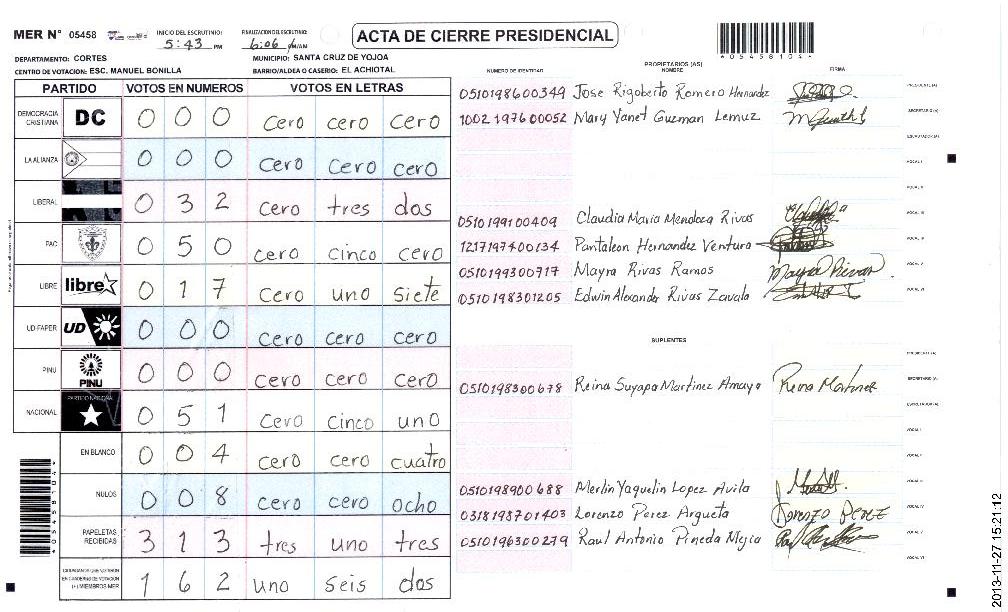 MER N° 05458
INICIO DEL ESCRUTINIO: 5:43 PM
FINALIZACION DEL ESCRUTINIO: 6:06
ACTA DE CIERRE PRESIDENCIAL
*05458104*
DEPARTAMENTO: CORTES
MUNICIPIO: SANTA CRUZ DE YOJOA
CENTRO DE VOTACION: ESC. MANUEL BONILLA
BARRIO/ALDEA O CASERIO: EL ACHIOTAL
PARTIDO VOTOS EN NUMEROS VOTOS EN LETRAS
DEMOCRACIA CRISTIANA DC 0 0 0 cero cero cero
LA ALIANZA 0 0 0 cero cero cero
LIBERAL 0 3 2 cero tres dos
PAC 0 5 0 cero cinco cero
LIBRE libre 0 1 7 cero uno siete
UD-FAPER UD 0 0 0 cero cero cero
PINU PINU 0 0 0 cero cero cero
NACIONAL PARTIDO NACIONAL 0 5 1 cero cinco uno
EN BLANCO 0 0 4 cero cero cuatro
NULOS 0 0 8 cero cero ocho
PAPELETAS RECIBIDAS 3 1 3 tres uno tres
CIUDADANOS QUE VOTARON EN CUADERNO DE VOTACION (+) MIEMBROS MER 1 6 2 uno seis dos
*05458104*
NUMERO DE IDENTIDAD PROPIETARIOS (AS) NOMBRE FIRMA
0510198600349 Jose Rigoberto Romero Hernandez PRESIDENTE (A)
1002197600052 Mary Yanet Guzman Lemuz SECRETARIO (A)
ESCRUTADOR (A)
VOCAL I
VOCAL II
0510199100409 Claudia Maria Mendoza Rivas VOCAL III
1217197400134 Pantaleon Hernandez Ventura VOCAL IV
0510199300717 Mayra Rivas Ramos Mayra Rivas VOCAL V
0510198301205 Edwin Alexander Rivas Zavala VOCAL VI
SUPLENTES
PRESIDENTE (A)
0510198300678 Reina Suyapa Martinez Amaya Reina Martinez SECRETARIO (A)
ESCRUTADOR (A)
VOCAL I
VOCAL II
0510198900688 Merlin Yaquelin Lopez Avila VOCAL III
0318198701403 Lorenzo Perez Argueta Lorenzo Perez VOCAL IV
0510196300279 Raul Antonio Pineda Mejia VOCAL V
VOCAL VI
2013-11-27 15:21:12